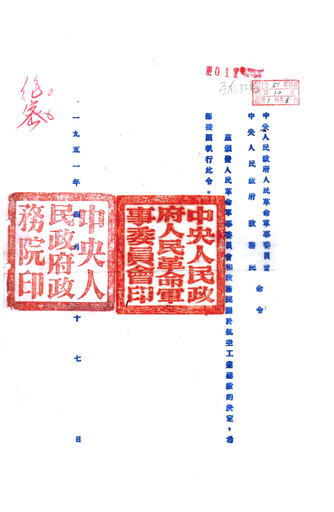 中央人民政府人民革命軍事委員會
中央人民政府政務院
命令
茲頒發人民革命軍事委員會和政務院關於航空工業建設的決定，希
即遵照執行此令。
中央人民政
府人民革命軍
事委員會印
一九五一年四月十七日
中央人
民政府政
務院印